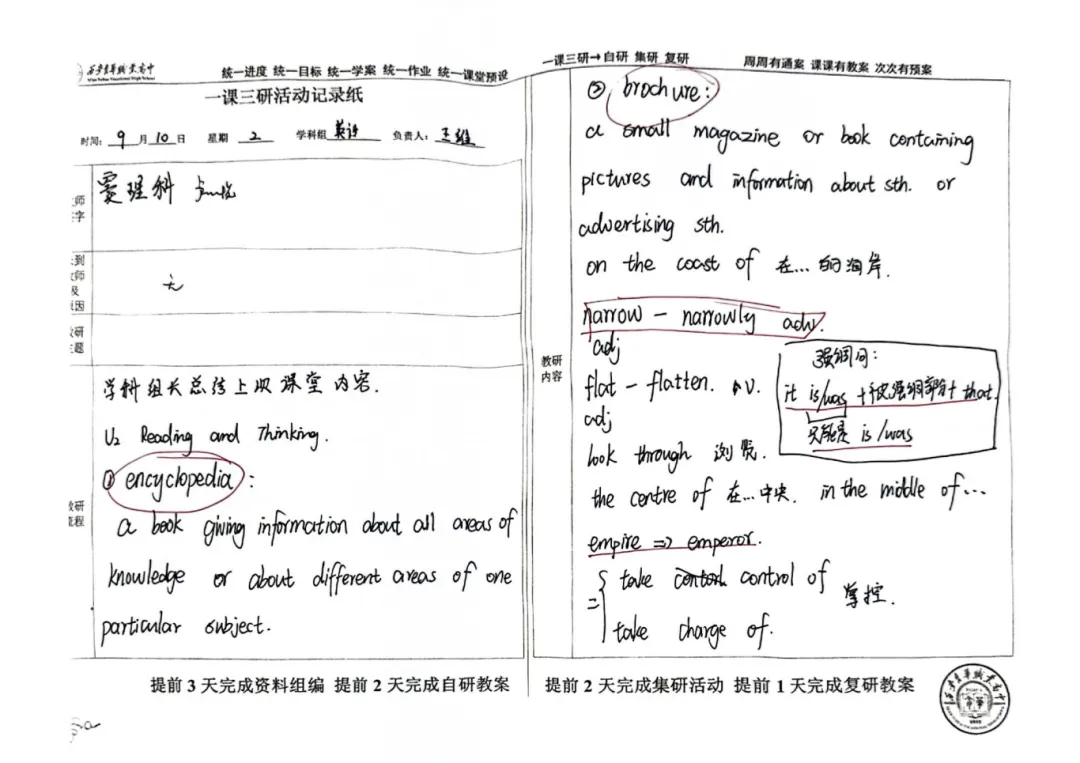 统一进度 统一目标 统一学案 统一作业 统一课堂预设
一课三研活动记录纸
时间: 9 月 10 日 星期 2 学科组 英语 负责人: 王维
窦理科
无
学科组长总结上取课堂内容.
U2 Reading and Thinking.
① encyclopedia :
a book giving information about all areas of
knowledge or about different areas of one
particular subject.
提前 3 天完成资料组编 提前 2 天完成自研教案
一课三研→自研 集研 复研 周周有通案 课课有教案 次次有预案
教研
内容
② brochure :
a small magazine or book containing
pictures and information about sth. or
advertising sth.
on the coast of 在...的海岸.
narrow - narrowly adv.
adj
flat - flatten. v.
adj
强调句:
it is/was +被强调部分+ that.
只能是 is/was
look through 浏览.
the centre of 在...中央. in the middle of...
empire => emperor.
= take control of 掌控.
take charge of.
提前 2 天完成集研活动 提前 1 天完成复研教案